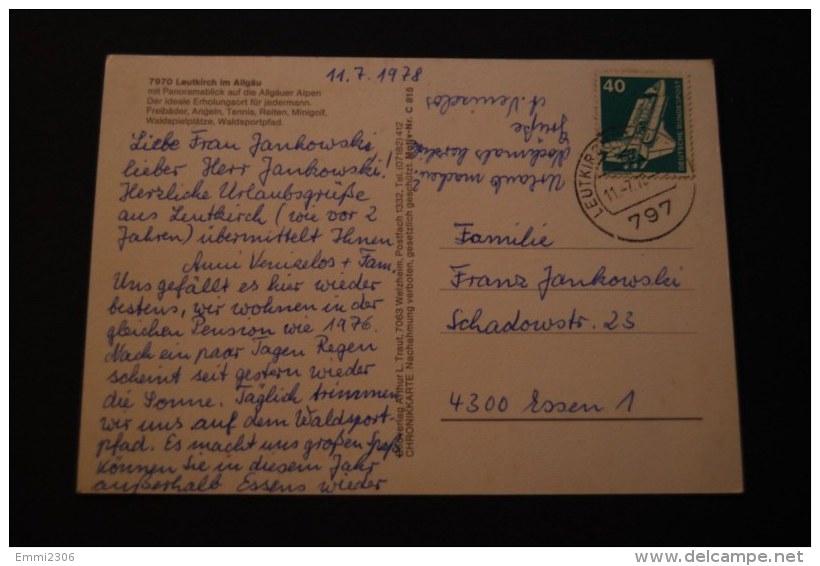 7970 Leutkirch im Allgäu
mit Panoramablick auf die Allgäuer Alpen
Der ideale Erholungsort für jedermann.
Freibäder, Angeln, Tennis, Reiten, Minigolf,
Waldspielplätze, Waldsportpfad.
11.7.1978
Liebe Frau Jankowski,
lieber Herr Jankowski!
Herzliche Urlaubsgrüße
aus Leutkirch (wie vor 2
Jahren) übermittelt Ihnen
Anni Venizelos + Fam.
Uns gefällt es hier wieder
bestens, wir wohnen in der
gleichen Pension wie 1976.
Nach ein paar Tagen Regen
scheint seit gestern wieder
die Sonne. Täglich trimmen
wir uns auf dem Waldsport-
pfad. Es macht uns großen Spaß.
Können Sie in diesem Jahr
außerhalb Essens wieder
Urlaub machen?
Nochmals herzl.
Grüße
A. Venizelos
Verlag Arthur L. Traut, 7063 Welzheim, Postfach 1332, Tel. (07182) 412
CHRONIKKARTE Nachahmung verboten, gesetzlich geschützt. Motiv-Nr. C 815
40
DEUTSCHE BUNDESPOST
LEUTKIRCH
11.-7.78
797
Familie
Franz Jankowski
Schadowstr. 23
4300 Essen 1
Emmi2306
delcampe.net